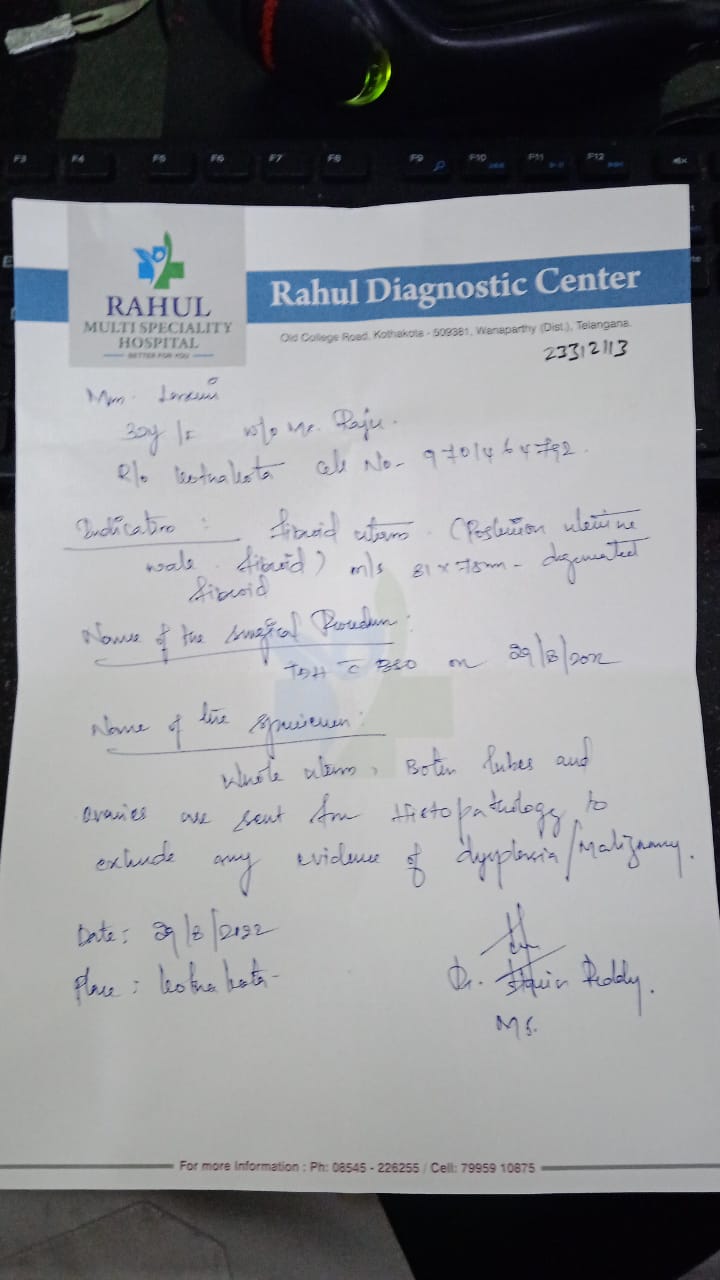 F3 F4 F5 F6 F7 F8 F9 F10 F11 F12
RAHUL
MULTI SPECIALITY
HOSPITAL
BETTER FOR YOU
Rahul Diagnostic Center
Old College Road, Kothakota - 509381, Wanaparthy (Dist.), Telangana.
23312113
30y /F w/o Mr. Raju.
R/o Kothakota Cell No- 9701464792.
Indication : fibroid uterus. (Posterior uterine
wall fibroid) m/s 81 x 78mm - degenerated
fibroid
Name of the surgical Procedure:
TAH c̄ BSO on 29/8/2022
Name of the specimen:
Whole uterus, Both tubes and
ovaries are sent for Histopathology to
exclude any evidence of dysplasia/Malignancy.
Date: 29/8/2022
Place: Kothakota-
Dr. Reddy.
MS.
For more Information : Ph: 08545 - 226255 / Cell: 79959 10875